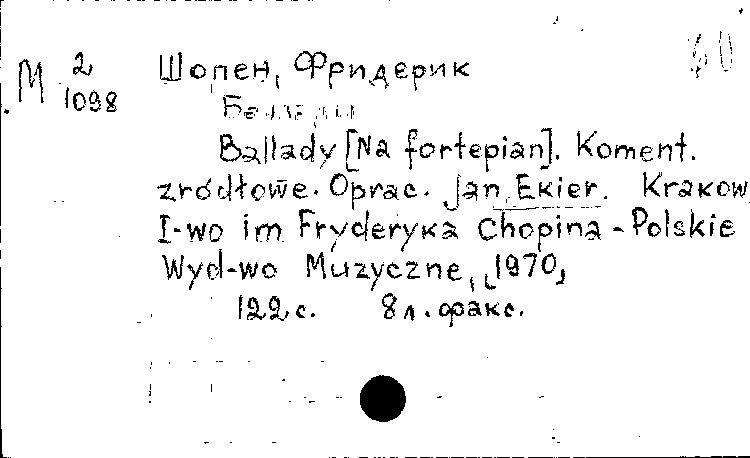 М 2 Шопен, Фридерик 60
1098
Ballady [Na fortepian]. Koment.
zródłowe. Oprac. Jan Ekier. Krakow
I-wo im Fryderyка Chopina - Polskie
Wyd-wo Muzyczne, [1970]
122 с. 8 л. факс.